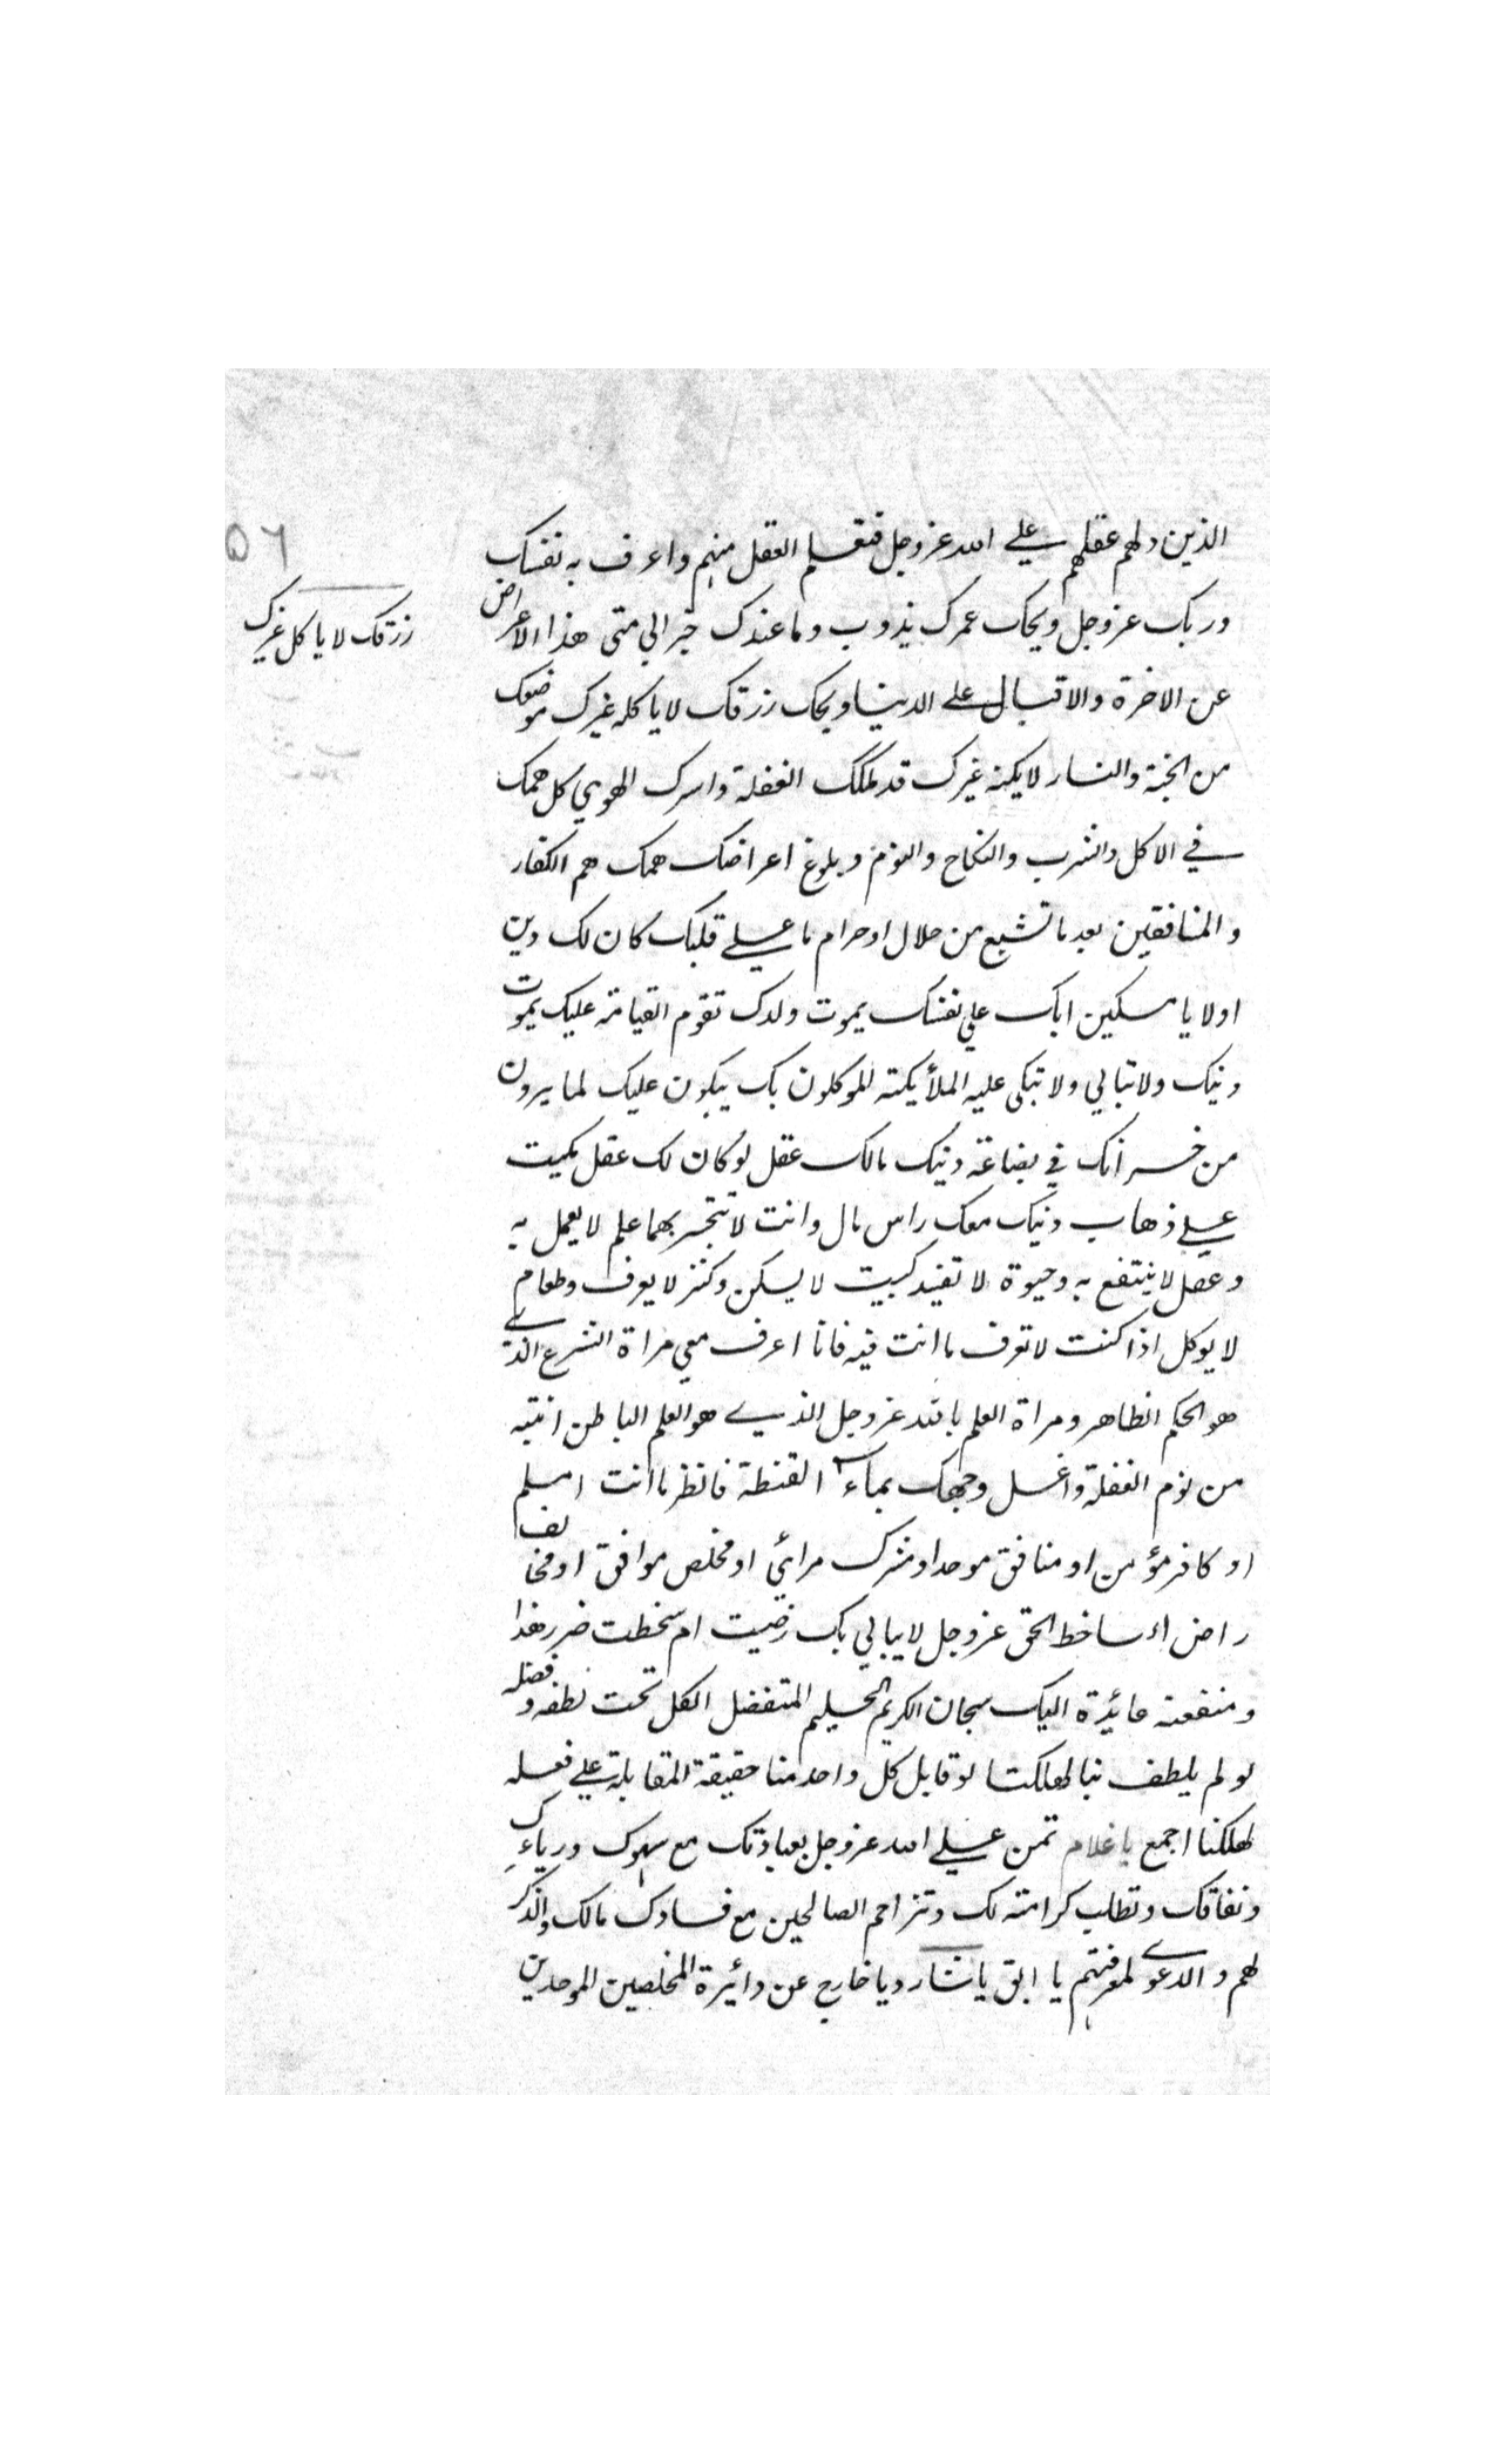 ٥٦
الذين دلهم عقلهم على الله عز وجل فتعلم العقل منهم واعرف به نفسك
وربك عز وجل ويحك عمرك يذوب وما عندك خبر الي متى هذا الاعراض
رزقك لا ياكل غيرك
عن الاخرة والاقبال على الدنيا ويحك رزقك لا ياكله غيرك موضعك
من الجنة والنار لا يسكنه غيرك قد ملكك الغفلة واسرك الهوي كل همك
في الاكل والشرب والنكاح والنوم وبلوغ اعراضك همك هم الكفار
والمنافقين بعد ما تشبع من حلال او حرام ما على قلبك كان لك دين
اولا يا مسكين ابك علي نفسك يموت ولدك تقوم القيامة عليك يموت
دينك ولا تبالي ولا تبكى عليه الملأيكته الموكلون بك يبكون عليك لما يرون
من خسرانك في بضاعة دينك مالك عقل لو كان لك عقل بكيت
على ذهاب دينك معك راس مال وانت لا تتجر بها علم لا يعمل به
وعقل لا ينتفع به وحيوة لا تفيد كبيت لا يسكن وكنز لا يعرف وطعام
لا يوكل اذا كنت لا تعرف ما انت فيه فانا اعرف معي مراة الشرع الذي
هو الحكم الظاهر ومراة العلم بالله عز وجل الذي هو العلم الباطن انتبه
من نوم الغفلة واغسل وجهك بماء القنطة فانظر ما انت امسلم
او كافر مؤمن او منافق موحد او مشرك مرائي او مخلص موافق او مخالف
راض او ساخط الحق عز وجل لا يبالي بك رضيت ام سخطت ضرر هذا
ومنفعته عائدة اليك سبحان الكريم الحليم المتفضل الكل تحت لطفه وفضله
لو لم يلطف بنا لهلكنا لو قابل كل واحد منا حقيقة المقابلة على فعله
لهلكنا اجمع يا غلام تمن على الله عز وجل بعبادتك مع سهوك ورياءك
ونفاقك وتطلب كرامته لك وتزاحم الصالحين مع فسادك مالك والذكر
لهم والدعوى لمعرفتهم يا ابق يا شارد يا خارج عن دائرة المخلصين الموحدين